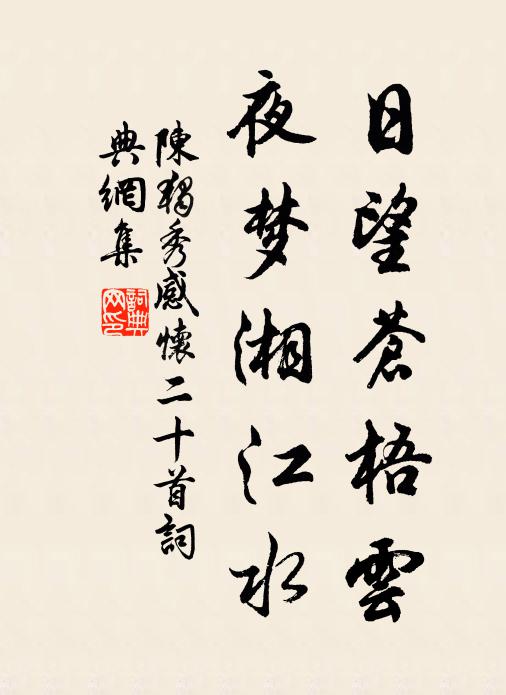 日望蒼梧雲
夜梦湘江水
陳独秀感懷二十首詞
典網集
詞典
网印